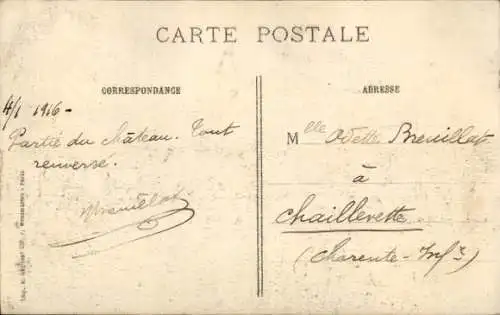 CARTE POSTALE
CORRESPONDANCE
4/1 1916 -
Partie du Château. Tout
renverse.
ADRESSE
Mlle Odette Breuillat
à
Chaillevette
(Charente-Infre)